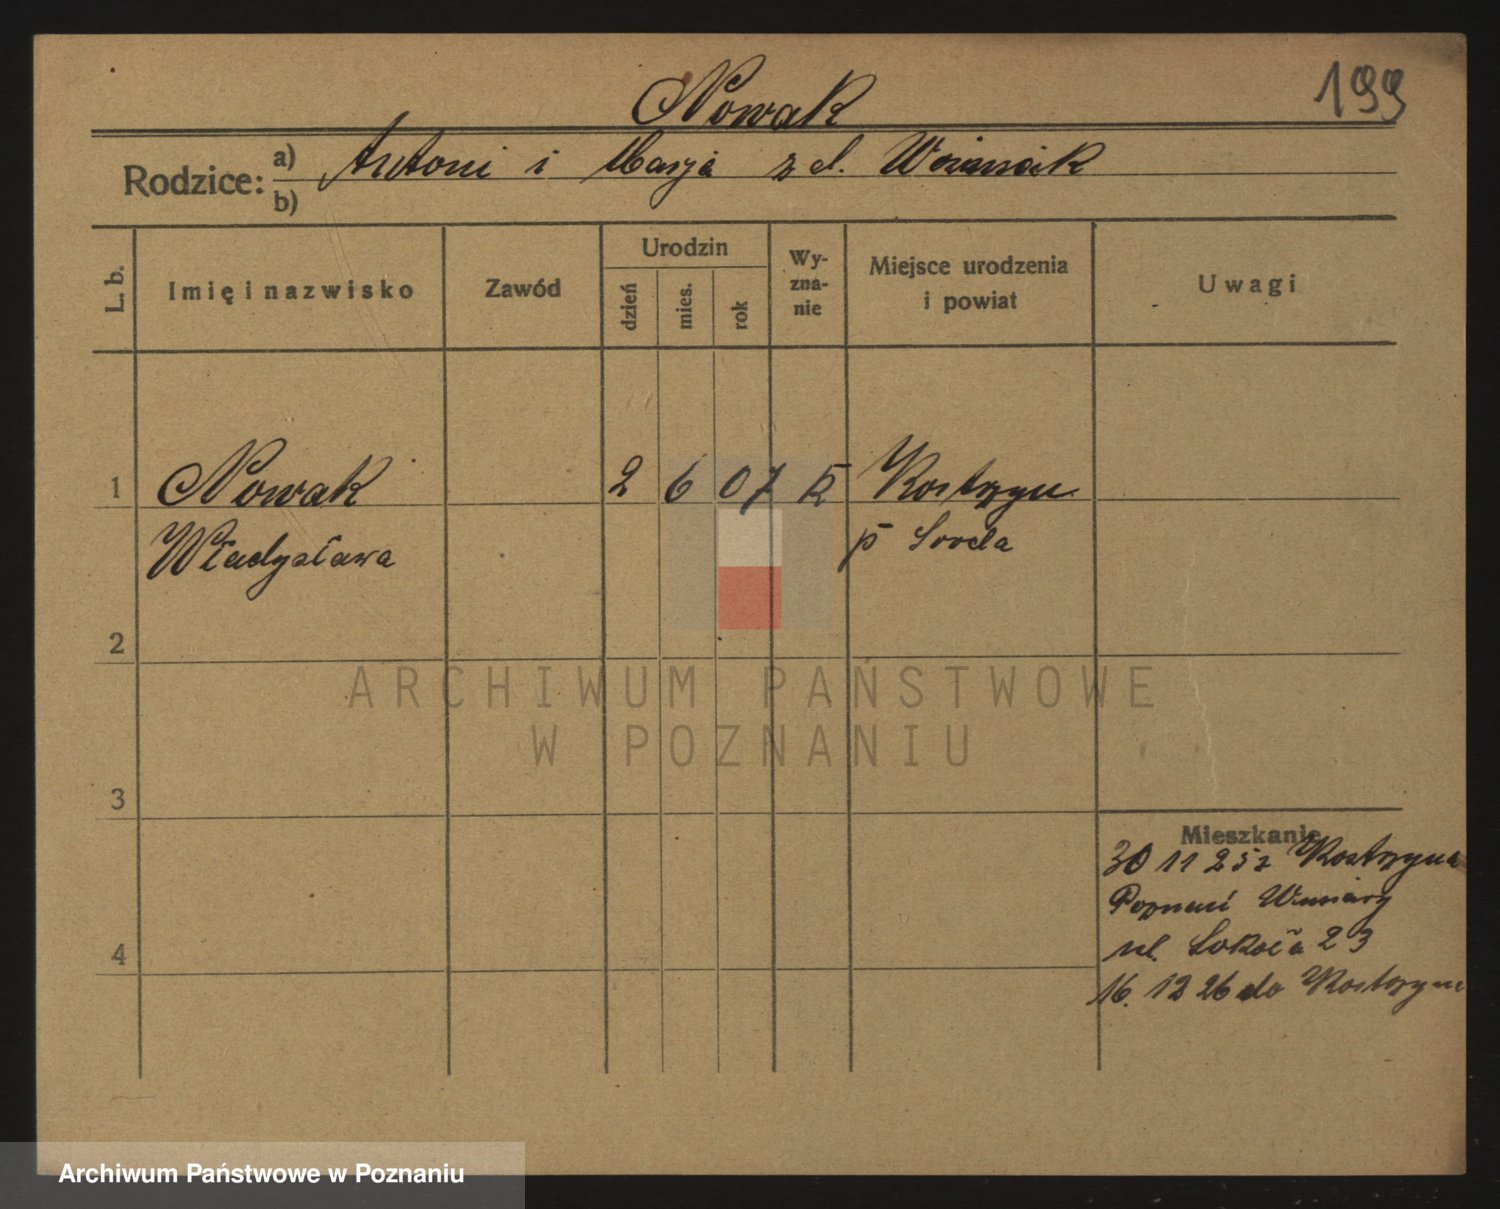 Nowak
199
Rodzice: a) Antoni i Marja z d. Woźniak
b)
L. b.
Imię i nazwisko
Zawód
Urodzin
dzień
mies.
rok
Wy-
zna-
nie
Miejsce urodzenia
i powiat
Uwagi
1 Nowak 2 6 07 K Kostrzyn
Władysława p Środa
2
3
4
Mieszkanie
30 11 25 z Kostrzyna
Poznań Winiary
ul. Sokoła 23
16. 12 26 do Kostrzyna
ARCHIWUM PAŃSTWOWE
W POZNANIU
Archiwum Państwowe w Poznaniu